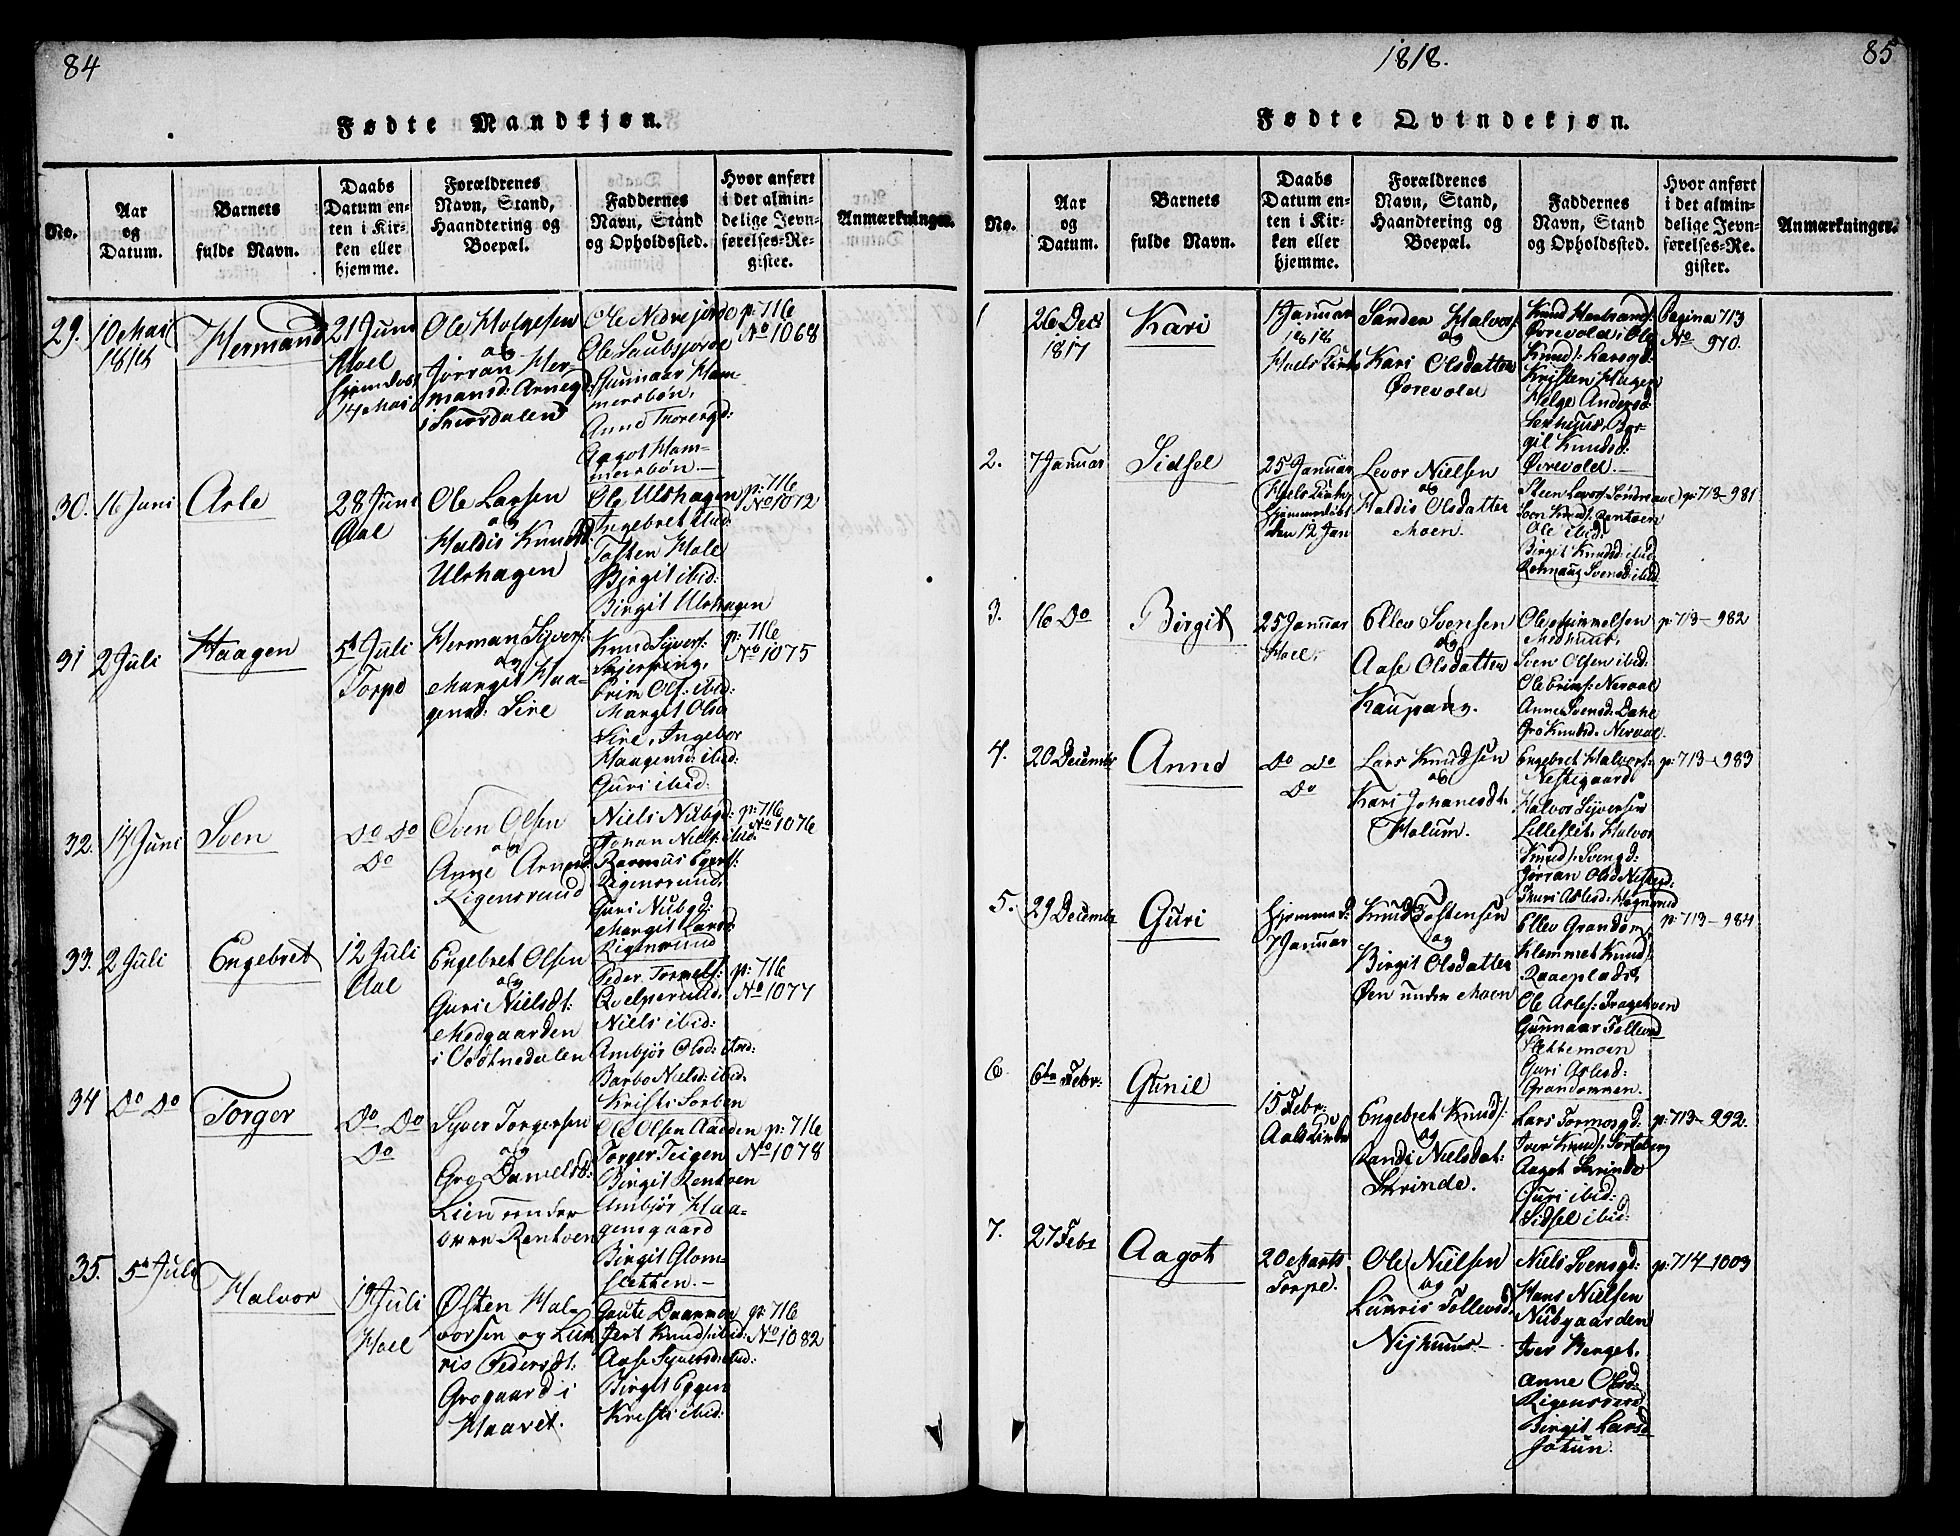 84
Fødte Mandkjøn.
No.
Aar
og
Datum.
Barnets
fulde Navn.
Daabs
Datum en-
ten i Kir-
ken eller
hjemme.
Forældrenes
Navn, Stand,
Haandtering og
Boepæl.
Faddernes
Navn, Stand
og Opholdssted.
Hvor anført
i det almin-
delige Jevn-
førelses-Re-
gister.
Anmærkninger.
29.
10 Mai
1818
Hermand
21 Juni
Hoel
14 Mai
Ole Helgesen
og
Jørran Her-
mansd: Arneg
i Skurdalen
Ole Nedrejorde
Gunnaar Ham-
mersbøn,
Anne Thorergd:
Aagot Ham-
mersbøn.
p: 716
No 1068
30.
16 Juni
Asle
28 Juni
Aal
Ole Larsen
og
Haldis Knudsd
Ulshagen
Ole Ulshagen
Ingebret ibid:
Tosten Hole
Birgit ibid:
Birgit Ulshagen
p: 716
No 1072
31
2 Juli
Haagen
5t Juli
Torpe
Herman Syvers:
og
Margit Haa-
gensd: Sire
Knud Syvers:
Grim Ols: ibid:
Margit Olsd
Sire, Ingebor
Haagensd: ibid:
Guri ibid:
p: 716
No 1075
32.
14 Juni
Sven
Do Do
Do
Sven Olsen
og
Anne Arnesd
Rigensrund
Niels Nubgd:
Johan Niels: ibid:
Rasmus
Rigensrund,
Guri Nubgd:
Margit Larsd:
Rigensrund
p: 716
No 1076
33.
2 Juli
Engebret
12 Juli
Aal
Engebret Olsen
og
Guri Nielsdt:
Medgaarden
i Vodtnedalen
Peder
Niels ibid:
Ambjør Olsd: ibid:
Barbo Nielsd: ibid:
Kristi
p: 716
No 1077
34
Do Do
Torger
Do Do
Do
Syver Torgersen
og
Gro Danielsd:
Lien under
øvre Rentven
Ole Olsen
Torger Teigen
Birgit Rentven
Ambjør Haa-
gensgaard
Birgit Glom-
sletten.
p: 716
No 1078
35.
5t Juli
Halvor
19 Juli
Hoel
Østen Hal-
vorsen og Liv
ris Pedersdt:
Grogaard i
Haavet.
Gaute
Gert Knuds: ibid:
Aase Syversd: ibid:
Birgit Eggen
Kristi ibid:
p: 716
No 1082
1818.
85
Fødte Qvindekjøn.
No.
Aar
og
Datum.
Barnets
fulde Navn.
Daabs
Datum en-
ten i Kir-
ken eller
hjemme.
Forældrenes
Navn, Stand,
Haandtering og
Boepæl.
Faddernes
Navn, Stand
og Opholdssted.
Hvor anført
i det almin-
delige Jevn-
førelses-Re-
gister.
Anmærkninger.
1
26 Dec
1817
Kari
1 Januar
1818
Hoels Kirke
Sander Halvors:
og
Kari Olsdatter
Ørevold
Knud Herbrands:
Ørevold, Ole
Knuds: Larsgd:
Kristen Hagen
Helge Andersd:
Bir-
git Knudsd:
Ørevold.
Pagina 713
No 970.
2.
7 Januar
Sidsel
25 Januar
Hoels Kirke
Hjemmedøbt
den 12 Jan
Levor Nielsen
og
Haldis Olsdatter
Moen.
Sven Knuds: Rentven
Ole ibid:
Birgit Knudsd: ibid
Svensd: ibid
p: 713 - 981
3.
16 Do
Birgit
25 Januar
Hoel.
Ellev Svensen
og
Aase Olsdatter
Kaupang.
Sven Olsen ibid:
Neraal
Anne Svensd:
Gro Knudsd. Neraal.
p: 713 - 982
4.
20 December
Anne
Do Do
Do
Lars Knudsen
og
Kari Johanesdt:
Holum.
Engebret Halvors:
Nestegaard
Halvor Syversen
Halvor
Knuds: Svengd:
Jørran Olsd
p: 713 - 983
5.
29 December
Guri
Hjemmed:
7 Januar
Knud Tostensen
og
Birgit Olsdatter
Øen under Moen
Ellev Grandom
Klemmet Knuds:
Gunnaar
Guri Aslesd:
Grandommen.
p: 713 - 984
6.
6te Febr:
Gunil
15 Febr:
Aals Kirke
Engebret Knuds:
og
Randi Nielsdat:
Skrinde.
Lars Tormosgd:
Iver Knuds:
Aagot Skrinde
Guri ibid:
Sidsel ibid:
p: 713 - 992.
7.
27 Febr
Aagot
20 Marts
Torpe.
Ole Nielsen
og
Livris Tollevsd
Nijhuus
Niels Svensgd:
Hans Nielsen
Nubgaarden
Iver Berget,
Anne Olsd:
Birgit Larsd
Jøtun.
p: 714 - 1003